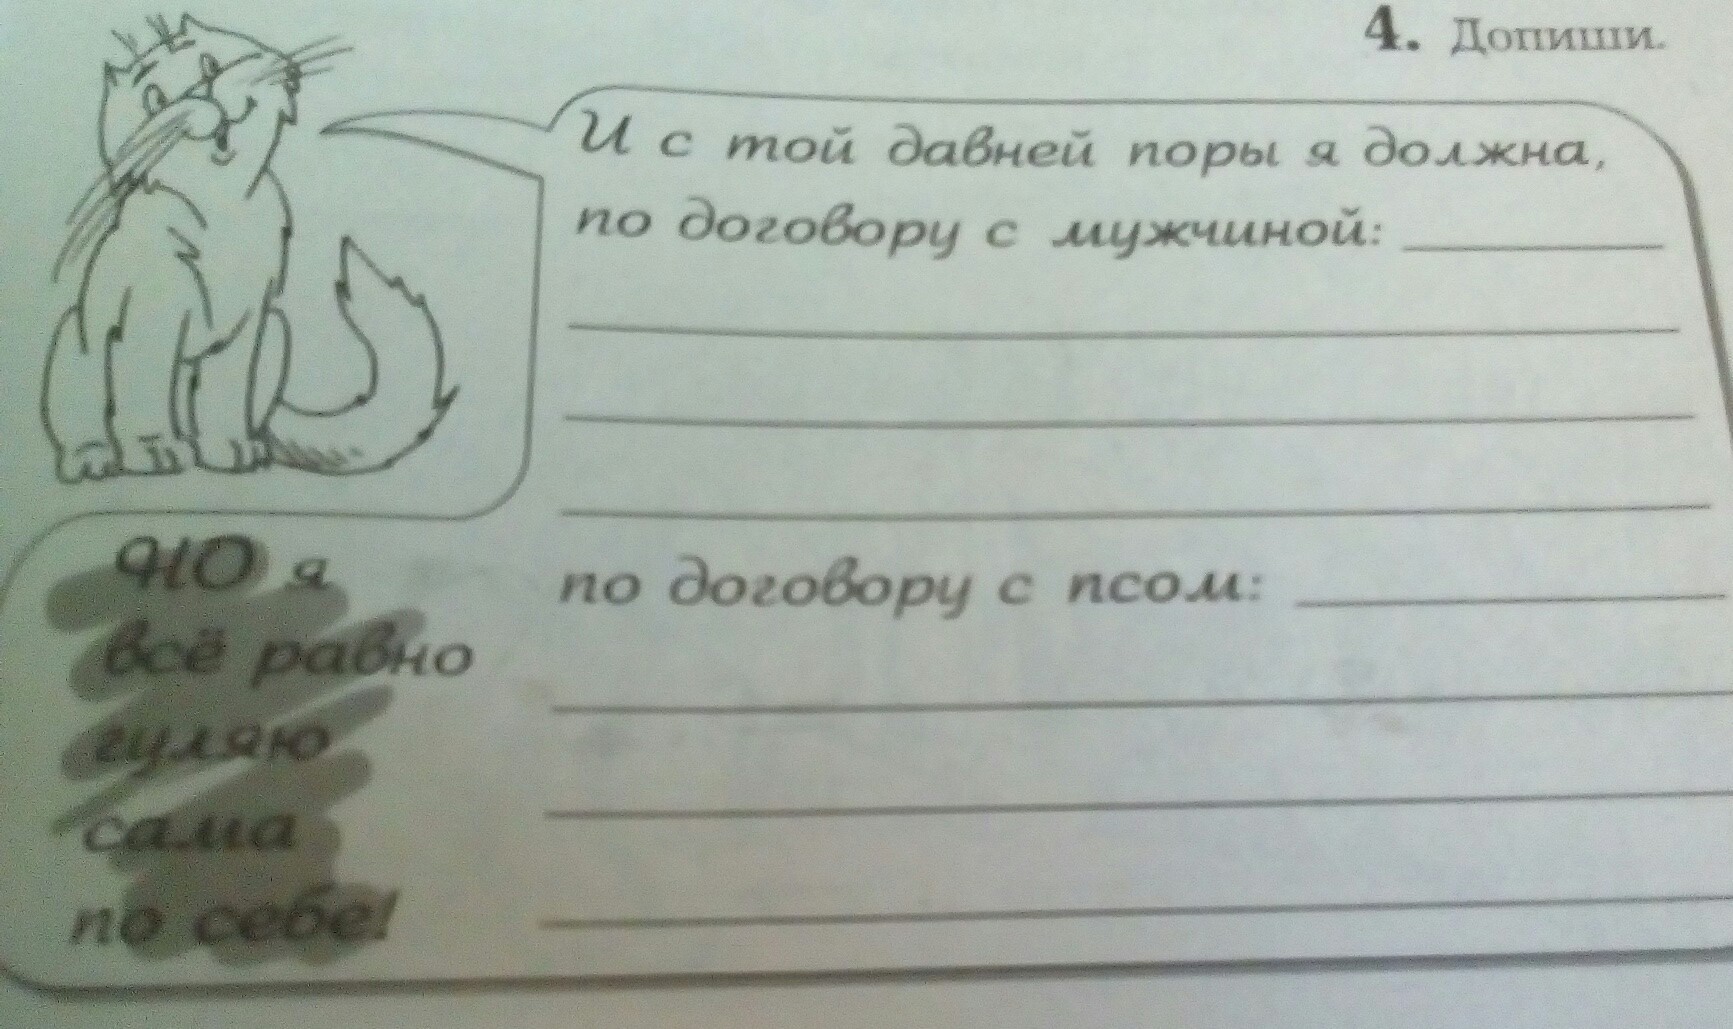 4. Допиши.
И с той давней поры я должна,
по договору с мужчиной:
по договору с псом:
НО я
всё равно
гуляю
сама
по себе!